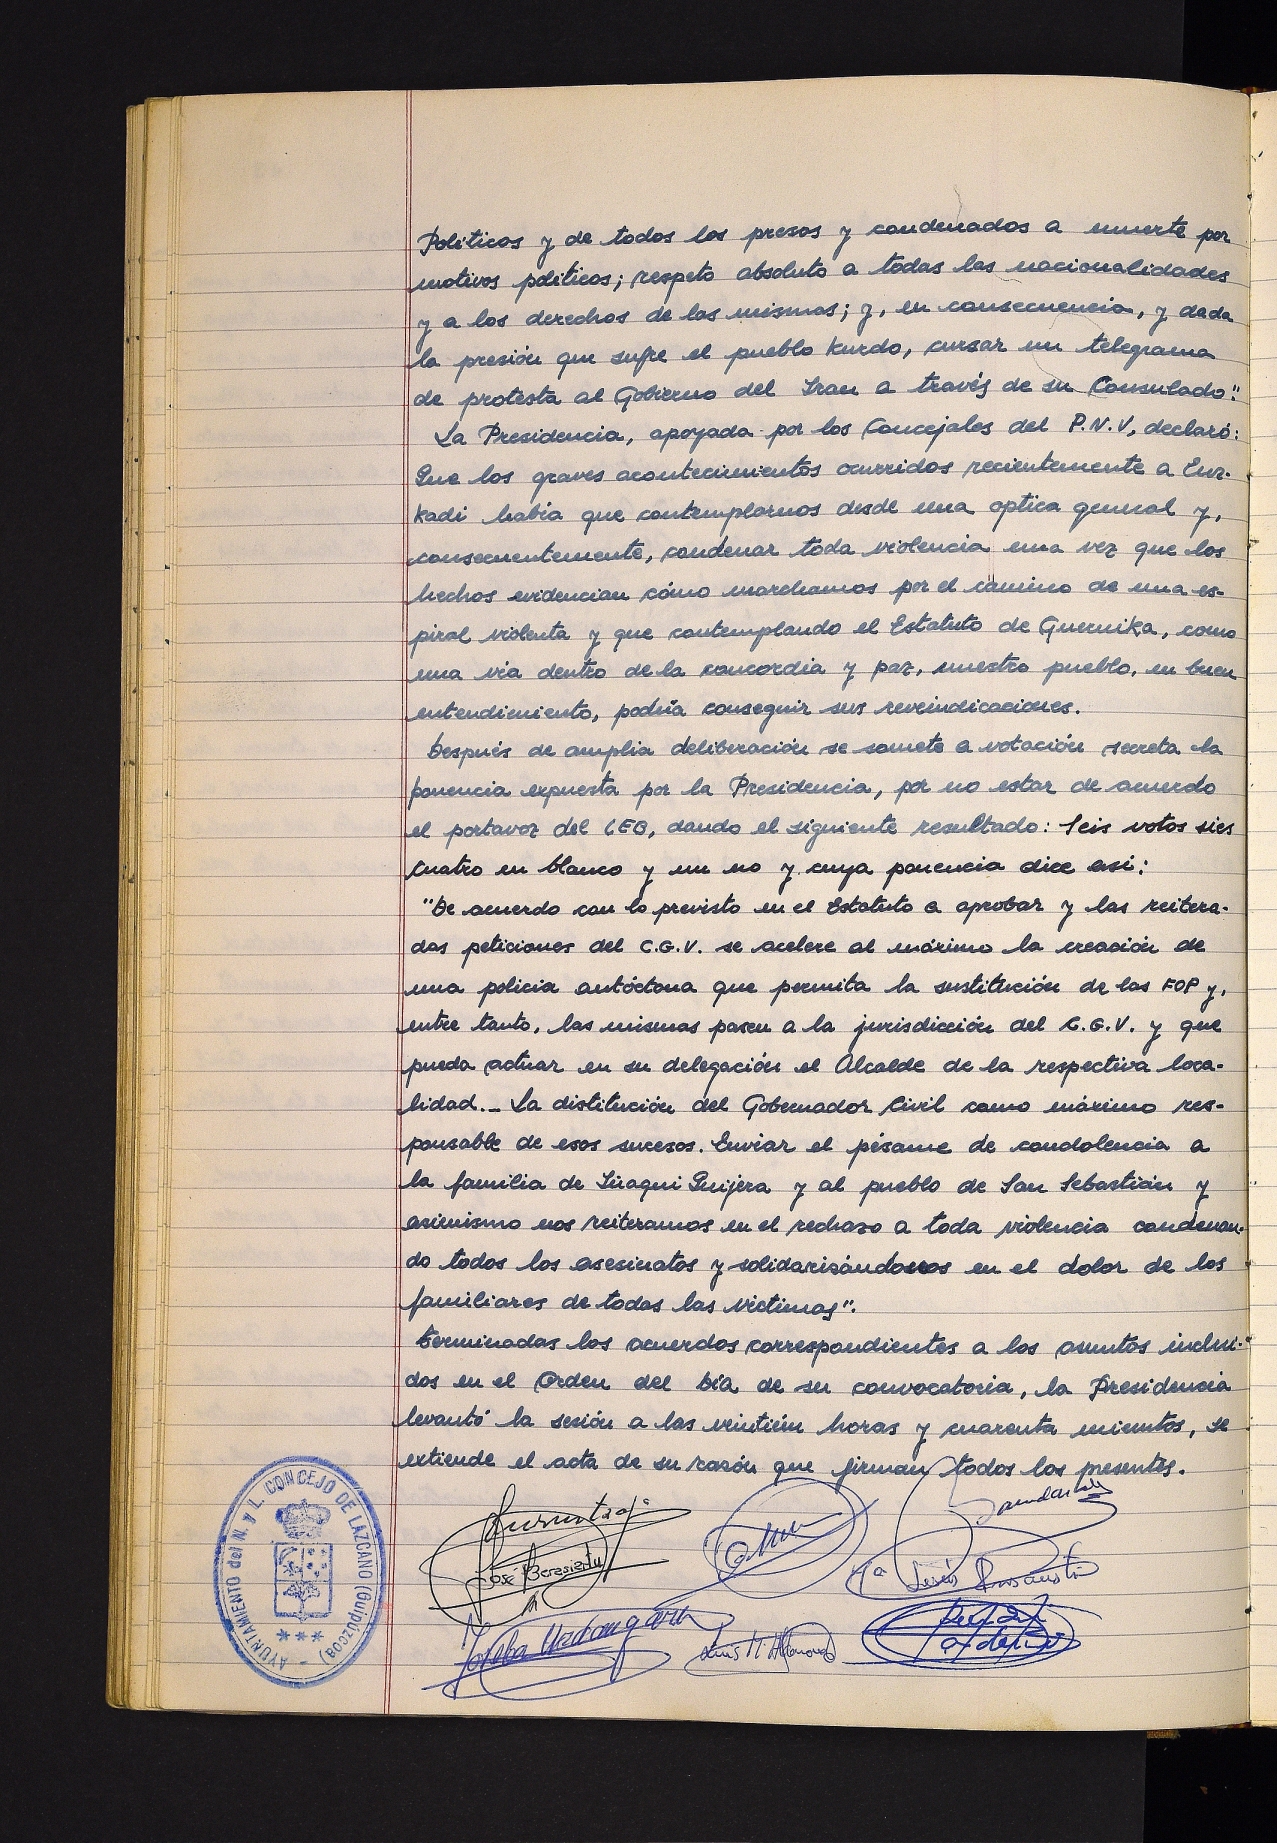 Políticos y de todos los presos y condenados a muerte por
motivos políticos; respeto absoluto a todas las nacionalidades
y a los derechos de las mismas; y, en consecuencia, y dada
la presión que sufre el pueblo kurdo, cursar un telegrama
de protesta al Gobierno del Iran a través de su Consulado."
La Presidencia, apoyada por los Concejales del P.N.V, declaró:
Que los graves acontecimientos ocurridos recientemente a Euz-
kadi había que contemplarnos desde una optica general y,
consecuentemente, condenar toda violencia una vez que los
hechos evidencian cómo marchamos por el camino de una es-
piral violenta y que contemplando el Estatuto de Guernika, como
una vía dentro de la concordia y paz, nuestro pueblo, en buen
entendimiento, podría conseguir sus reveindicaciones.
Después de amplia deliberación se somete a votación secreta la
ponencia expuesta por la Presidencia, por no estar de acuerdo
el portavoz del LEB, dando el siguiente resultado: Seis votos sies
cuatro en blanco y un no y cuya ponencia dice así:
"De acuerdo con lo previsto en el Estatuto a aprobar y las reitera-
das peticiones del C.G.V. se acelere al máximo la creación de
una policía autóctona que permita la sustitución de las FOP y,
entre tanto, las mismas pasen a la jurisdicción del C.G.V. y que
pueda actuar en su delegación el Alcalde de la respectiva loca-
lidad.- La distitución del Gobernador Civil como máximo res-
ponsable de esos sucesos. Enviar el pésame de condolencia a
la familia de Iñaqui Quijera y al pueblo de San Sebastián y
asimismo nos reiteramos en el rechazo a toda violencia condenan-
do todos los asesinatos y solidarizándonos en el dolor de los
familiares de todas las víctimas".
Terminadas los acuerdos correspondientes a los asuntos inclui-
dos en el Orden del Día de su convocatoria, la Presidencia
levantó la sesión a las veintiún horas y cuarenta minutos, se
extiende el acta de su razón que firman todos los presentes.
AYUNTAMIENTO del N. y L. CONCEJO DE LAZCANO (Guipúzcoa)
José Berasiartu
Joseba Urdangarin